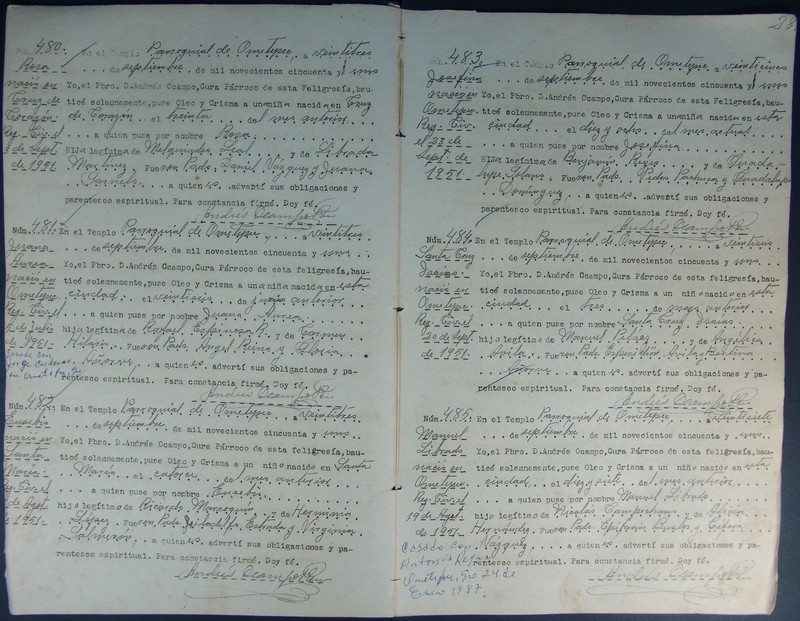 Núm. 480. En el Templo Parroquial de Ometepec, a veintitres
Rosa . . . de septiembre. de mil novecientos cincuenta y uno
nació en Yo, el Pbro. D. Andrés Ocampo, Cura Párroco de esta Feligresía, bau-
Cruz de ticé solemnemente, puse Oleo y Crisma a una niña nacida en Cruz
Corazon de Corazon el treinta del mes anterior.
Reg. Civil . . . a quien puse por nombre Rosa
Sept. HIJA legítima de Leal y de Librada
de 1951 Martinez. Fueron Pads. Daniel Vázquez y Juana
a quien es. advertí sus obligaciones y
parentesco espiritual. Para constancia firmé. Doy fé.
Andrés Ocampo
Núm. 481. En el Templo Parroquial de Ometepec, a veintitres
Juana . . . de septiembre. de mil novecientos cincuenta y uno
Aurea Yo, el Pbro. D. Andrés Ocampo, Cura Párroco de esta feligresía, bau-
nació en ticé solemnemente, puse Oleo y Crisma a una niña nacida en esta
Ometepec ciudad el veintiseis de anterior.
Reg. Civil el . . . a quien puse por nombre Juana Aurea
de julio hija legítima de Rafael Espinosa y de Carmen
de 1951 Hilario. Fueron Pads. Angel Reina y
a quien es. advertí sus obligaciones y pa-
rentesco espiritual. Para constancia firmé. Doy fé.
Andrés Ocampo
Núm. 482. En el Templo Parroquial de Ometepec, a veintitres
Eusebio . . . de septiembre. de mil novecientos cincuenta y uno
nació en Yo, el Pbro. D. Andrés Ocampo, Cura Párroco de esta Feligresía, bau-
Santa ticé solemnemente, puse Oleo y Crisma a un niño nacido en Santa
María María el catorce del mes anterior.
Reg. Civil el . . . a quien puse por nombre Eusebio
de Agst. hijo legítimo de Ricardo y de Herminia
de 1951 López. Fueron Pads. Estrada y Virginia
Salmeron. . a quien es. advertí sus obligaciones y pa-
rentesco espiritual. Para constancia firmé. Doy fé.
Andrés Ocampo
28
Núm. 483. En el Templo Parroquial de Ometepec, a veinticinco
Josefina . . . de septiembre. de mil novecientos cincuenta y uno
nació en Yo, el Pbro. D. Andrés Ocampo, Cura Párroco de esta Feligresía, bau-
Ometepec ticé solemnemente, puse Oleo y Crisma a una niña nacida en esta
Reg. Civ. ciudad el diez y ocho del mes actual.
el 23 de . . . a quien puse por nombre Josefina
Sept. de HIJA legítima de Benjamín Reyes y de Guada-
1951. lupe Solano. Fueron Pads. Pedro Pastrana y Guadalupe
Domínguez a quien es. advertí sus obligaciones y
parentesco espiritual. Para constancia firmé. Doy fé.
Andrés Ocampo
Núm. 484. En el Templo Parroquial de Ometepec, a veintiseis
Santa Cruz . . . de septiembre. de mil novecientos cincuenta y uno
Yo, el Pbro. D. Andrés Ocampo, Cura Párroco de esta feligresía, bau-
nació en ticé solemnemente, puse Oleo y Crisma a un niño nacido en esta
Ometepec ciudad el tres de mayo anterior.
Reg. Civ. el . . . a quien puse por nombre Santa Cruz
20 de Sept. hijo legítimo de Manuel Peláez y de Angelina
de 1951. Avila. Fueron Pads. Espiridión Avila y
a quien es. advertí sus obligaciones y pa-
rentesco espiritual. Para constancia firmé. Doy fé.
Andrés Ocampo
Núm. 485. En el Templo Parroquial de Ometepec, a veintisiete
Manuel . . . de septiembre. de mil novecientos cincuenta y uno
Librado Yo, el Pbro. D. Andrés Ocampo, Cura Párroco de esta Feligresía, bau-
nació en ticé solemnemente, puse Oleo y Crisma a un niño nacido en esta
Ometepec ciudad el diez y siete del mes anterior.
Reg. Civ. el . . . a quien puse por nombre Manuel Librado
19 de Agst. hijo legítimo de Nicolás y de Alicia
de 1951 Hernández. Fueron Pads. Epifanio Bustos y
Vázquez a quien es. advertí sus obligaciones y pa-
rentesco espiritual. Para constancia firmé. Doy fé.
Andrés Ocampo
Casado con
Antonia Reyna
Ometepec, Gro 24 de
Enero 1987.